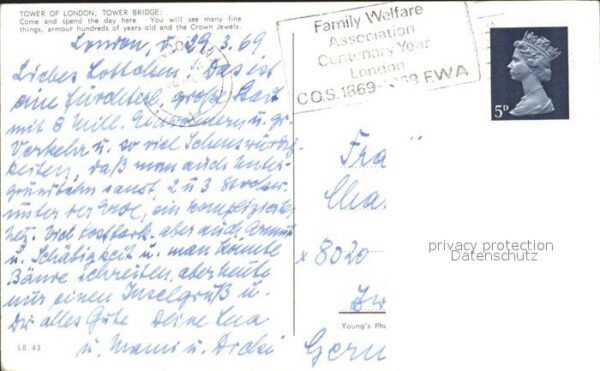 TOWER OF LONDON; TOWER BRIDGE:
Come and spend the day here. You will see many fine
things, armour hundreds of years old and the Crown Jewels.
London, d. 29.3.69
Liebes Lottchen! Das ist
eine fürchterl. große Stadt
mit 8 Mill. Einwohnern u. gr.
Verkehr u. so viel Sehenswürdig-
keiten, daß man auch Unter-
grundbahn saust, 2 u 3 Stockw.
unter der Erde, ein kompliziertes
Netz. Viel Kostbark. aber auch Armut
u. Schäbigkeit u. man könnte
Bände schreiben, aber heute
nur einen Inselgruß u.
Dir alles Gute Deine
u. Mami u.
LO 43
Family Welfare
Association
Centenary Year
London
C.O.S. 1869-1969 F.W.A
5D
8020
privacy protection
Datenschutz
Young's Pho
Germ